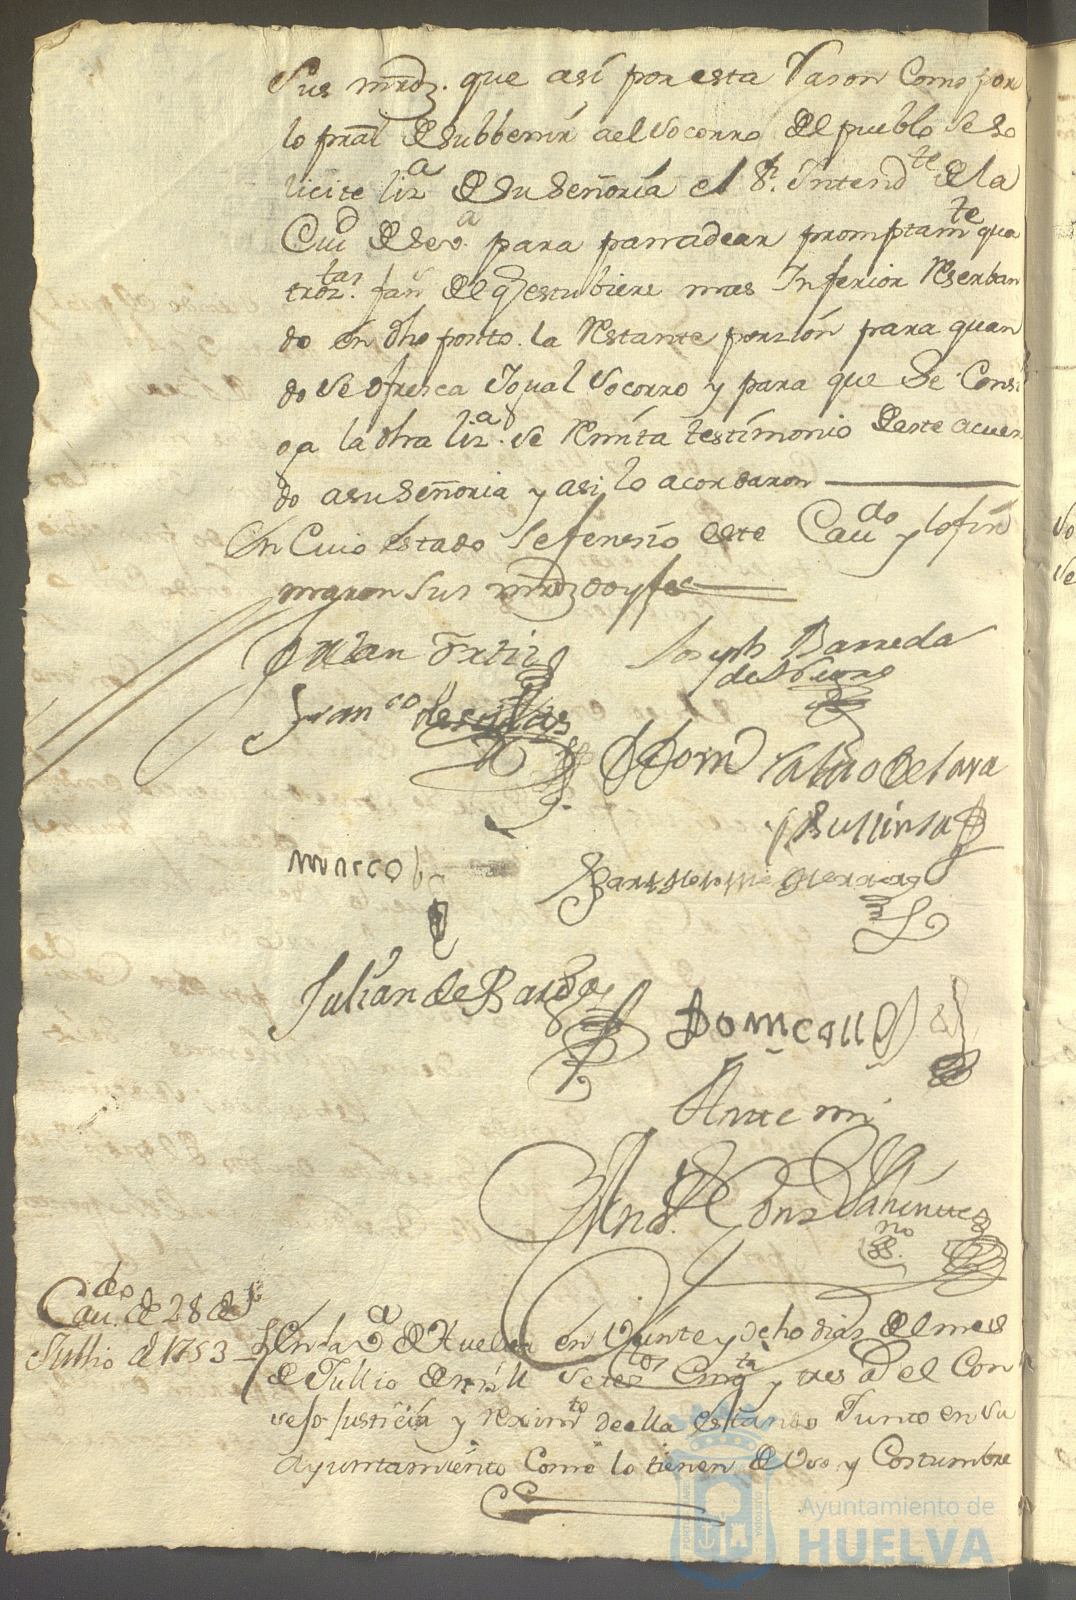 Sus mrds. que asi por esta rason Como por
lo pral de subbenir a el socorro del pueblo se so
licite liza de su Señoria el Sr. Intendte de la
Ciud de Seva. para panadear promptamte qua
troztas. fan del q estubiere mas Inferior Reserban
do en dho posito. la Restante porzion para quan
do se ofresca Igual socorro y para que se Consi
ga la dha liza. se Remita testimonio deeste acuer
do a su Señoria y asi lo acordaron
En Cuio estado se fenesio este Caudo y lo fir
maron sus mrds doy fee
Joseph Barreda
Franco de
Dom de Lara
Marco
Bartholome
Julian de
Dom
Ante mi
Caudo. de 28 de
Jullio de 1753
En la Va de Huelva en Veinte y ocho dias del mes
de Jullio de mill setezos Cinqta y tres as el Con
sejo Justicia y reximto de ella estando Junto en su
Ayuntamiento Como lo tienen de Uso y Costumbre
Ayuntamiento de
HUELVA